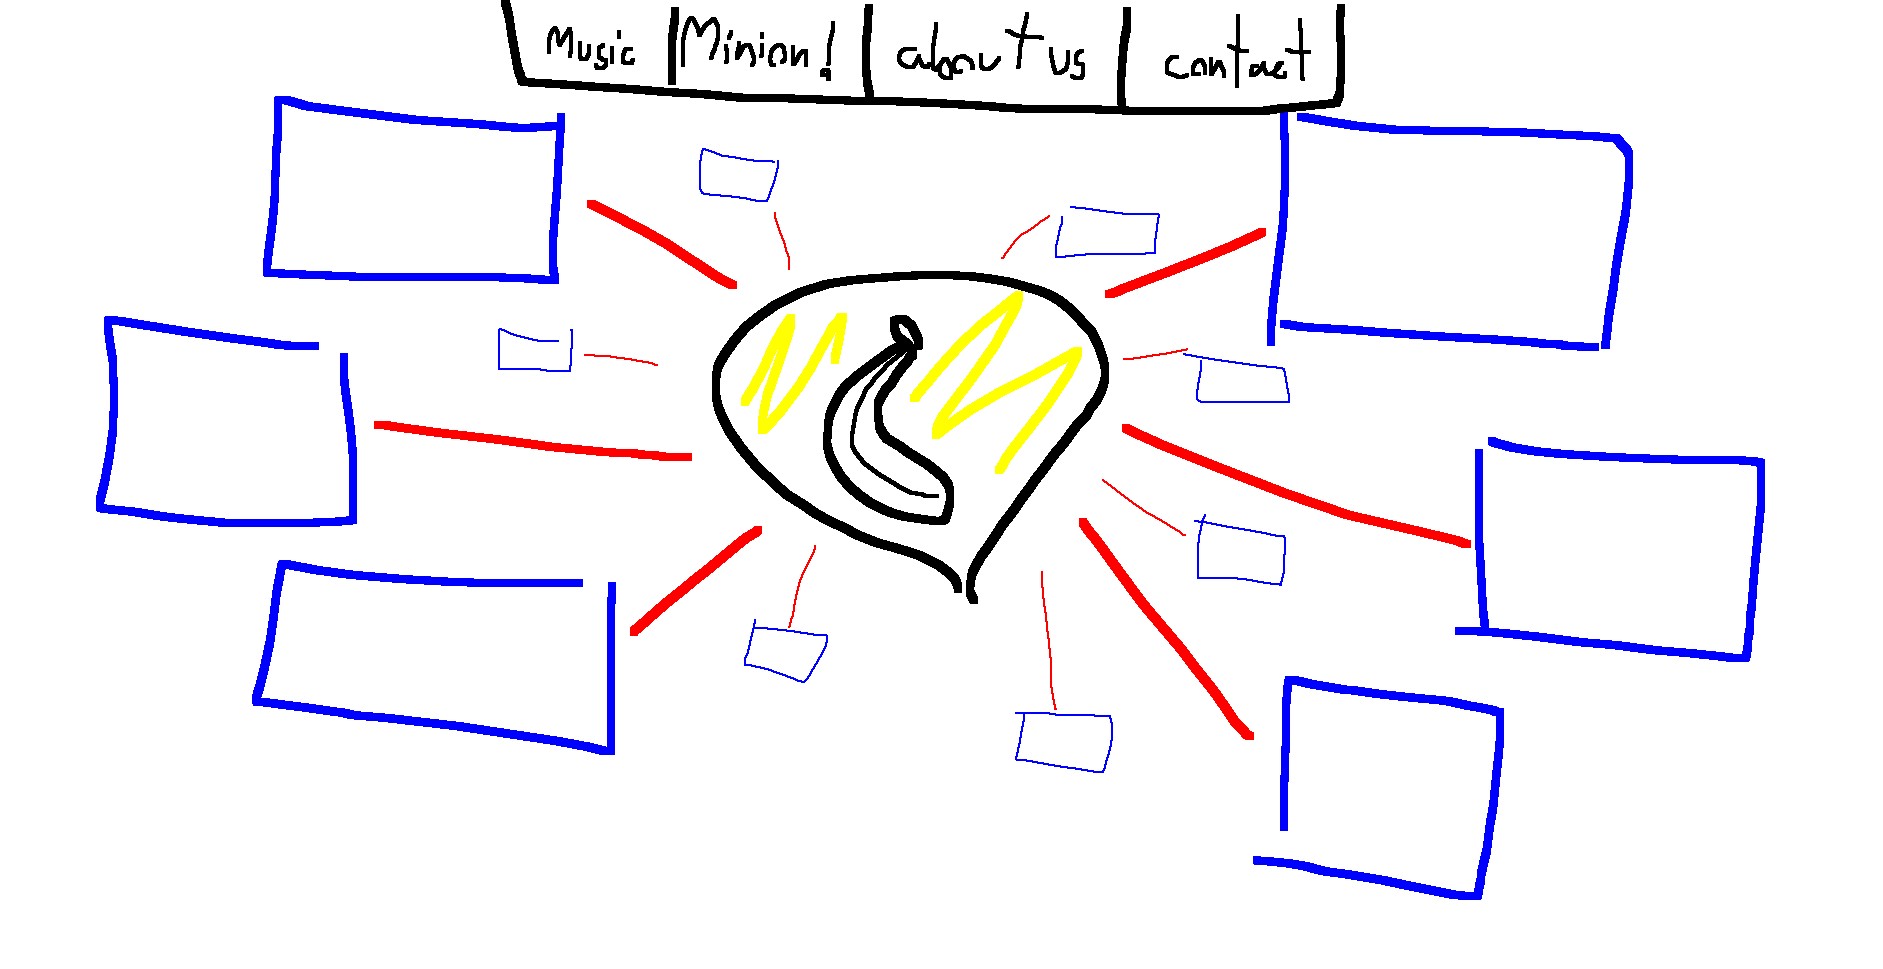 Music
Minion!
about us
contact